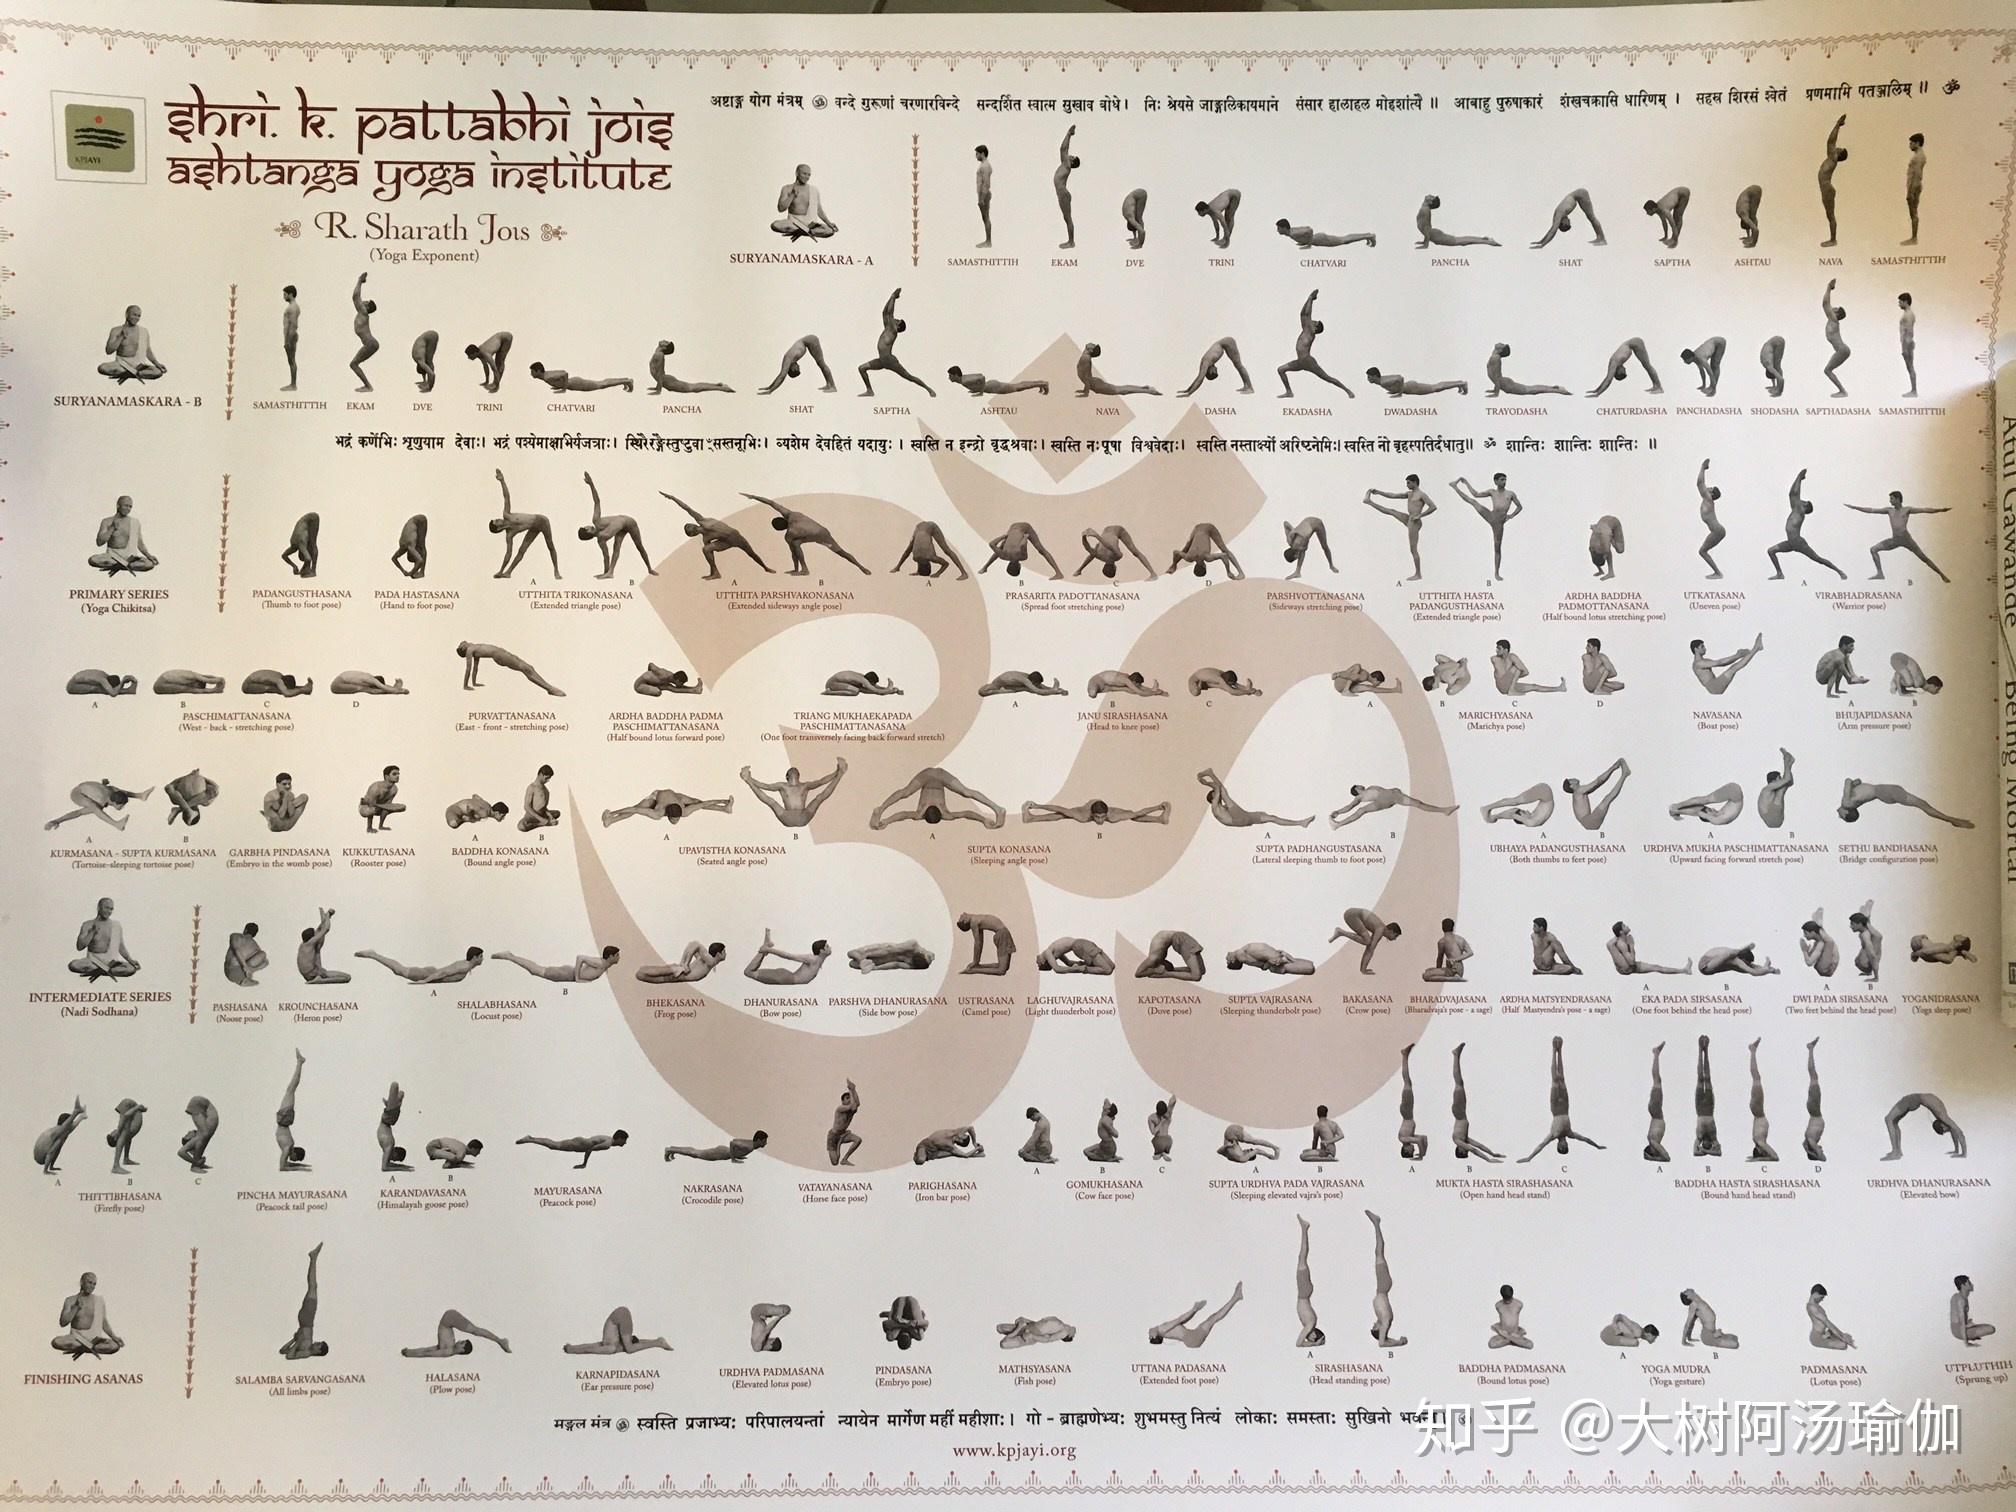 shri. k. pattabhi jois
ashtanga yoga institute
KPJAYI
R. Sharath Jois
(Yoga Exponent)
अष्टाङ्ग योग मंत्रम् ॐ वन्दे गुरूणां चरणारविन्दे सन्दर्शित स्वात्म सुखाव बोधे। निः श्रेयसे जाङ्गलिकायमाने संसार हालाहल मोहशांत्यै ॥ आबाहु पुरुषाकारं शंखचक्रासि धारिणम् । सहस्र शिरसं श्वेतं प्रणमामि पतञ्जलिम् ॥ ॐ
SURYANAMASKARA - A
SAMASTHITTIH EKAM DVE TRINI CHATVARI PANCHA SHAT SAPTHA ASHTAU NAVA SAMASTHITTIH
SURYANAMASKARA - B
SAMASTHITTIH EKAM DVE TRINI CHATVARI PANCHA SHAT SAPTHA ASHTAU NAVA DASHA EKADASHA DWADASHA TRAYODASHA CHATURDASHA PANCHADASHA SHODASHA SAPTHADASHA SAMASTHITTIH
भद्रं कर्णेभिः शृणुयाम देवाः। भद्रं पश्येमाक्षाभिर्यजत्राः। व्यशेम देवहितं यदायुः । स्वस्ति न इन्द्रो वृद्धश्रवाः। स्वस्ति नः पूषा विश्ववेदाः। स्वस्ति नस्तार्क्ष्यो अरिष्टनेमिः। स्वस्ति नो बृहस्पतिर्दधातु॥ ॐ शान्तिः शान्तिः शान्तिः ॥
PRIMARY SERIES
(Yoga Chikitsa)
A B A B A B C D A B A B
PADANGUSTHASANA PADA HASTASANA UTTHITA TRIKONASANA UTTHITA PARSHVAKONASANA PRASARITA PADOTTANASANA PARSHVOTTANASANA UTTHITA HASTA PADANGUSTHASANA ARDHA BADDHA PADMOTTANASANA UTKATASANA VIRABHADRASANA
(Thumb to foot pose) (Hand to foot pose) (Extended triangle pose) (Extended sideways angle pose) (Spread foot stretching pose) (Sideways stretching pose) (Extended triangle pose) (Half bound lotus stretching pose) (Uneven pose) (Warrior pose)
A B C D A B C A B C D A B
PASCHIMATTANASANA PURVATTANASANA ARDHA BADDHA PADMA PASCHIMATTANASANA TRIANG MUKHAEKAPADA PASCHIMATTANASANA JANU SIRASHASANA MARICHYASANA NAVASANA BHUJAPIDASANA
(West - back - stretching pose) (East - front - stretching pose) (Half bound lotus forward pose) (One foot transversely facing back forward stretch) (Head to knee pose) (Marichya pose) (Boat pose) (Arm pressure pose)
A B A B A B A B A B A B A B
KURMASANA - SUPTA KURMASANA GARBHA PINDASANA KUKKUTASANA BADDHA KONASANA UPAVISTHA KONASANA SUPTA KONASANA SUPTA PADHANGUSTASANA UBHAYA PADANGUSTHASANA URDHVA MUKHA PASCHIMATTANASANA SETHU BANDHASANA
(Tortoise-sleeping tortoise pose) (Embryo in the womb pose) (Rooster pose) (Bound angle pose) (Seated angle pose) (Sleeping angle pose) (Lateral sleeping thumb to foot pose) (Both thumbs to feet pose) (Upward facing forward stretch pose) (Bridge configuration pose)
INTERMEDIATE SERIES
(Nadi Sodhana)
A B A B A B
PASHASANA KROUNCHASANA SHALABHASANA BHEKASANA DHANURASANA PARSHVA DHANURASANA USTRASANA LAGHUVAJRASANA KAPOTASANA SUPTA VAJRASANA BAKASANA BHARADVAJASANA ARDHA MATSYENDRASANA EKA PADA SIRSASANA DWI PADA SIRSASANA YOGANIDRASANA
(Noose pose) (Heron pose) (Locust pose) (Frog pose) (Bow pose) (Side bow pose) (Camel pose) (Light thunderbolt pose) (Dove pose) (Sleeping thunderbolt pose) (Crow pose) (Bharadvaja's pose - a sage) (Half Mastyendra's pose - a sage) (One foot behind the head pose) (Two feet behind the head pose) (Yoga sleep pose)
A B C A B A B C A B A B C A B C D
THITTIBHASANA PINCHA MAYURASANA KARANDAVASANA MAYURASANA NAKRASANA VATAYANASANA PARIGHASANA GOMUKHASANA SUPTA URDHVA PADA VAJRASANA MUKTA HASTA SIRASHASANA BADDHA HASTA SIRASHASANA URDHVA DHANURASANA
(Firefly pose) (Peacock tail pose) (Himalayah goose pose) (Peacock pose) (Crocodile pose) (Horse face pose) (Iron bar pose) (Cow face pose) (Sleeping elevated vajra's pose) (Open hand head stand) (Bound hand head stand) (Elevated bow)
FINISHING ASANAS
A B A B
SALAMBA SARVANGASANA HALASANA KARNAPIDASANA URDHVA PADMASANA PINDASANA MATHSYASANA UTTANA PADASANA SIRASHASANA BADDHA PADMASANA YOGA MUDRA PADMASANA UTPLUTHIH
(All limbs pose) (Plow pose) (Ear pressure pose) (Elevated lotus pose) (Embryo pose) (Fish pose) (Extended foot pose) (Head standing pose) (Bound lotus pose) (Yoga gesture) (Lotus pose) (Sprung up)
मङ्गल मंत्र ॐ स्वस्ति प्रजाभ्यः परिपालयन्तां न्यायेन मार्गेण महीं महीशाः। गो - ब्राह्मणेभ्यः शुभमस्तु नित्यं लोकाः समस्ताः सुखिनो
www.kpjayi.org
知乎 @大树阿汤瑜伽
Atul Gawande Being Mortal